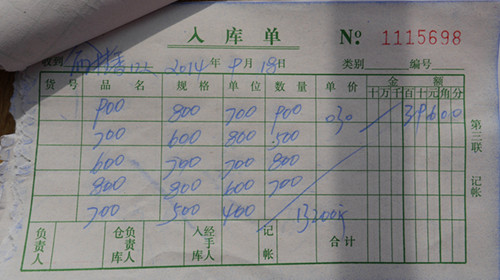 入库单 № 1115698
收到 2014年9月18日 类别 编号
货号 品名 规格 单位 数量 单价 金额
十万千百十元角分
900 800 700 900 030 396000
700 600 800 500
600 700 700 800
800 800 600 700
700 500 400 13200
负责人 仓库负责人 入库经手人 记帐 合计
第三联 记帐